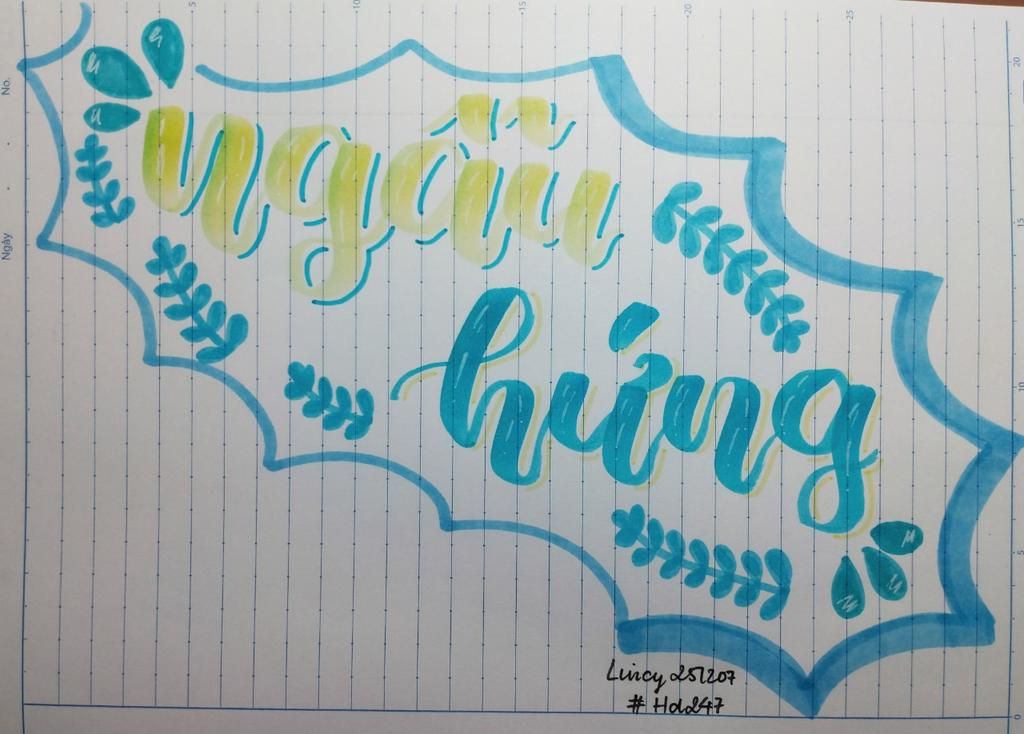 ngẫu
hứng
Lincy 251207
# Hd247
No.
Ngày
5
10
15
20
25
20
15
10
5
0